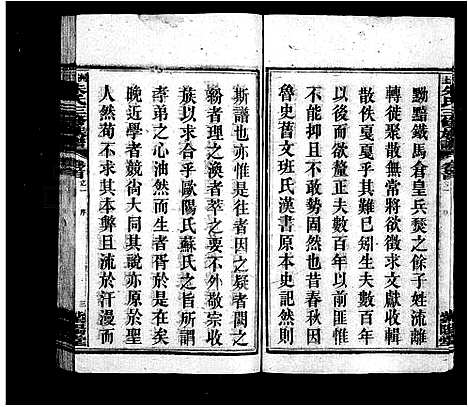 黝黯鐵馬倉皇兵燹之餘子姓流離
轉徙聚散無常將欲徵求文獻收輯
散佚戛戛乎其難已矧生夫數百年
以後而釐正夫數百年以前匪惟不
敢抑不能不敢勢固然也昔春秋因
魯史舊文班氏漢書原本史記然則
斯譜也亦惟是往者因之疑者闕之
紛者理之渙者萃之要不外敬宗收
族以求合乎歐陽氏蘇氏之旨所謂
孝弟之心油然而生者胥於是乎在
晚近學者競尚大同其說亦原於聖
人然苟不求其本弊且流於汗漫而